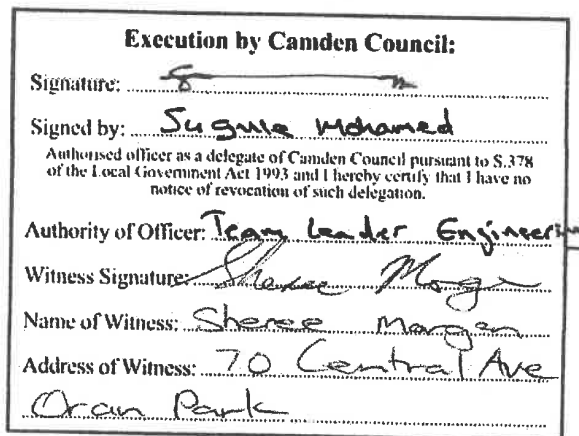 Execution by Camden Council:
Signature:
Signed by: Mohamed
Authorised officer as a delegate of Camden Council pursuant to S.378
of the Local Government Act 1993 and I hereby certify that I have no
notice of revocation of such delegation.
Authority of Officer: Team Leader Engineering
Witness Signature: Sheree Morgan
Name of Witness: Sheree Morgan
Address of Witness: 70 Central Ave
Oran Park